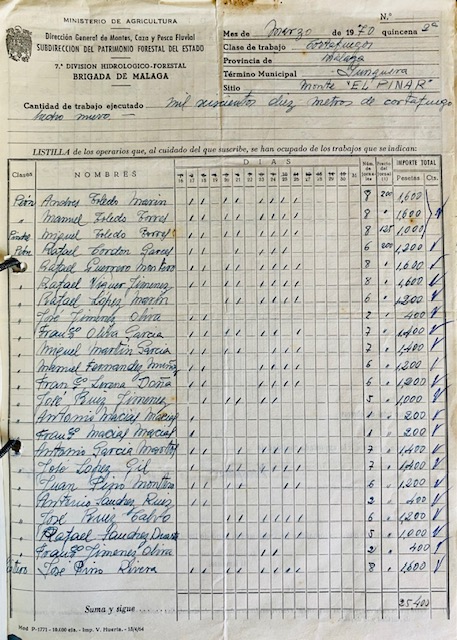 N.º
MINISTERIO DE AGRICULTURA
Dirección General de Montes, Caza y Pesca Fluvial
SUBDIRECCION DEL PATRIMONIO FORESTAL DEL ESTADO
7.ª DIVISION HIDROLOGICO-FORESTAL
BRIGADA DE MALAGA
Mes de Marzo de 1970 quincena 2ª
Clase de trabajo Cortafuegos
Provincia de Malaga
Término Municipal Yunquera
Sitio Monte "EL PINAR"
Cantidad de trabajo ejecutado mil seiscientos diez metros de cortafuego
hecho nuevo —
LISTILLA de los operarios que, al cuidado del que suscribe, se han ocupado de los trabajos que se indican:
Clases NOMBRES DIAS IMPORTE TOTAL
Pesetas Cts.
Peón Andres Toledo Marin 8 200 1,600
" Manuel Toledo Torres 8 " 1,600
Miguel Toledo Torres 8 125 1,000
Peón Rafael Cordon Garcia 6 200 1,200
" Rafael Guerrero Montero 8 " 1,600
" Rafael Viquer Jimenez 8 " 1,600
" Rafael López Martin 6 " 1,200
" José Jimenez Oliva 2 " 400
" Franco Oliva Garcia 7 " 1,400
" Miguel Martin Garcia 7 " 1,400
" Manuel Fernandez Muñoz 6 " 1,200
" Franco Lorena Doña 6 " 1,200
" José Ruiz Jimenez 5 " 1,000
" Antonio Macias Macias 1 " 200
" Franco Macias Macias 1 " 200
" Antonio Garcia Martos 7 " 1,400
" José Lopez Gil 7 " 1,400
" Juan Pino Montero 6 " 1,200
" Antonio Sanchez Ruiz 2 " 400
" José Ruiz Calvo 6 " 1,200
" Rafael Sanchez Duarte 5 " 1,000
" Franco Jimenez Oliva 2 " 400
José Pino Rivera 8 " 1,600
Suma y sigue 25,400
Mod P-1771 - 10.000 ejs. - Imp. V. Huerta. - 13/4/64